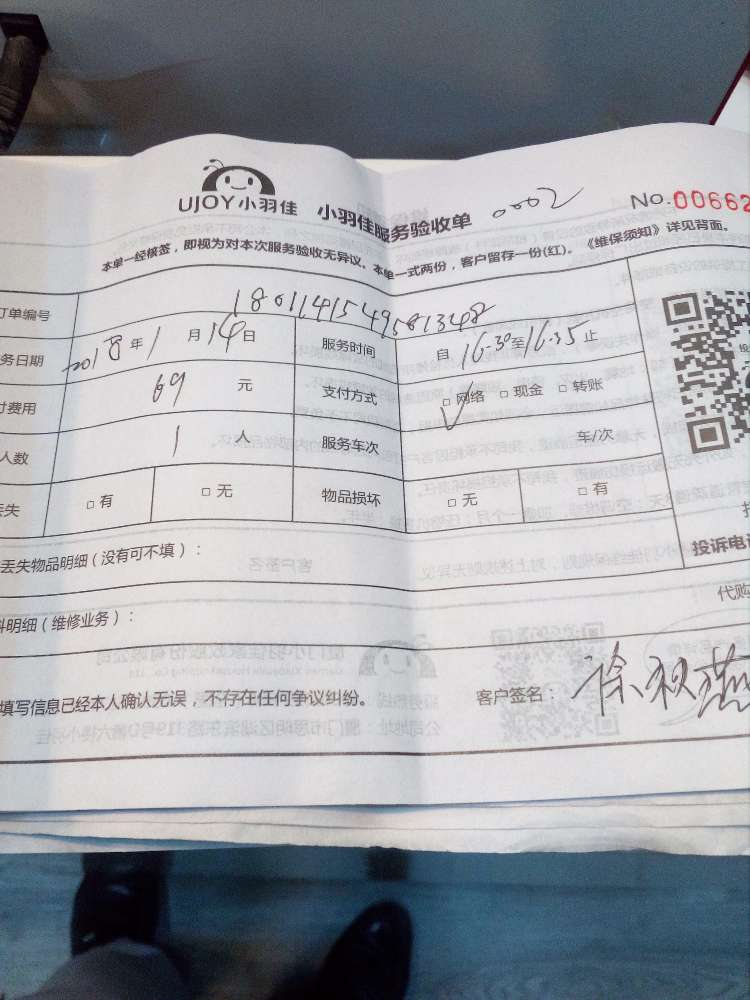 UJOY小羽佳 小羽佳服务验收单 0002 No.00662
本单一经核签，即视为对本次服务验收无异议。本单一式两份，客户留存一份(红)。《维保须知》详见背面。
订单编号 18011415495813348
务日期 2018年1月14日 服务时间 自16:30至16:35止
付费用 69元 支付方式 □网络 □现金 □转账
人数 1人 服务车次 车/次
丢失 □有 □无 物品损坏 □无 □有
投诉电
丢失物品明细（没有可不填）：
代购
料明细（维修业务）：
填写信息已经本人确认无误，不存在任何争议纠纷。 客户签名：徐秋燕